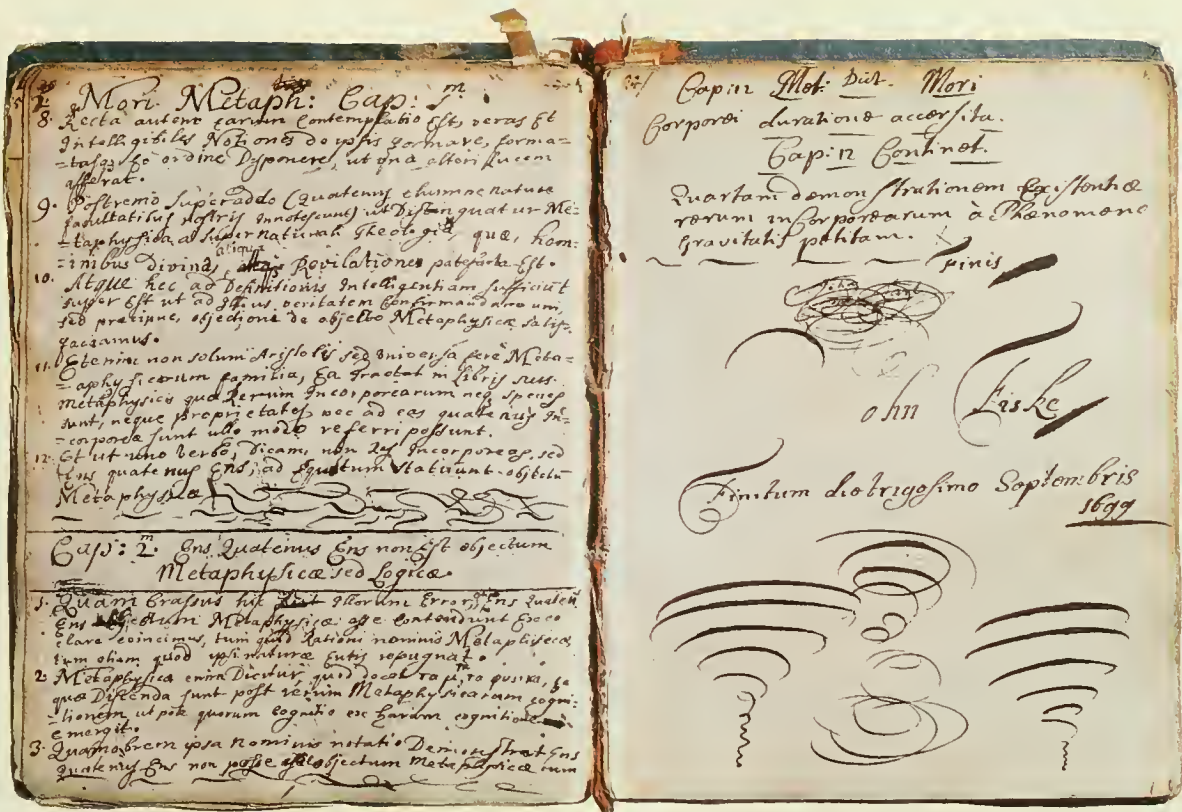 Mori Metaph: Cap: 1m.
8. Recta autem earum Contemplatio Est, veras Et
Intelligibiles Notiones de ipsis formare, forma=
=tasq eo ordine Disponere, ut una alteri lucem
afferat.
9. Postremo superaddo (Quatenus e lumine naturæ
facultatibus nostris Innotescunt) ut Distinguatur Me=
=taphysica a supernaturali Theologia, quæ, hom=
=inibus divina, aliqua Revilatione patefacta Est.
10. Atque hec ad Definitionis Intelligentiam sufficiut
super Est ut ad Illius veritatem Confirmandam uni,
sed precipue, objectioni de objecto Metaphysicæ satis=
faciamus.
11. Etenim non solum Aristotelis sed universa fere Meta=
=aphysicorum familia, Ea Tractat in Libris suis
Metaphysicis quæ Rerum Incorporearum neq species
sunt, neque proprietates nec ad eas quatenus In=
=corporeæ sunt ullo modo referri possunt.
12. Et ut uno Verbo, Dicam, non Res Incorporeas, sed
Ens quatenus Ens, ad Equatum statuunt objectu
Metaphysicæ
Cap: 2m. Ens Quatenus Ens non Est objectum
Metaphysicæ sed Logicæ.
1. Quam Crassus hic Illorum Error, qui Ens Quaten
Ens objectum Metaphysicæ esse Contendunt Ex eo
clare evincimus, tum quod Rationi nominis Metaphisicæ
tum etiam quod ipsi naturæ Entis repugnat.
2. Metaphysica enim Dicitur, quod doceat τα μ, τα φυσικα,
quæ Discenda sunt post rerum Metaphysicarum cogni=
=tionem utpote quorum cognitio ex harum cognitione
emergit.
3. Quamobrem ipsa nominis notatio Demonstrat Ens
Quatenus Ens non posse objectum Metaphysicæ cum
Cap: 12 Met: Dict. Mori
Corporei duratione accersita.
Cap: 12 Continet.
Quartam demonstrationem Existentiæ
rerum inCorporearum à Phænomeno
Gravitatis petitam.
Finis
ohn Fiske
Finitum die trigesimo Septembris
1699